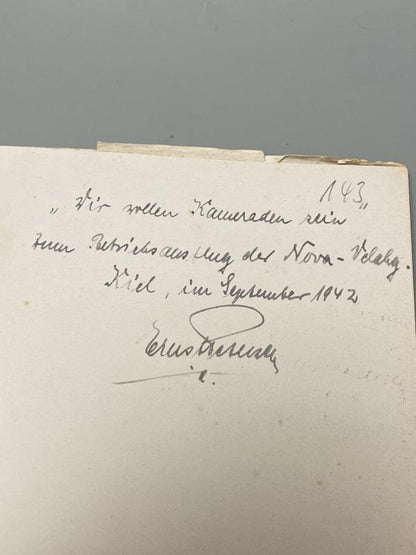 143
„Wir wollen Kameraden sein
zum Betriebsausflug der Nova-
Kiel, im September 1942
Ernst